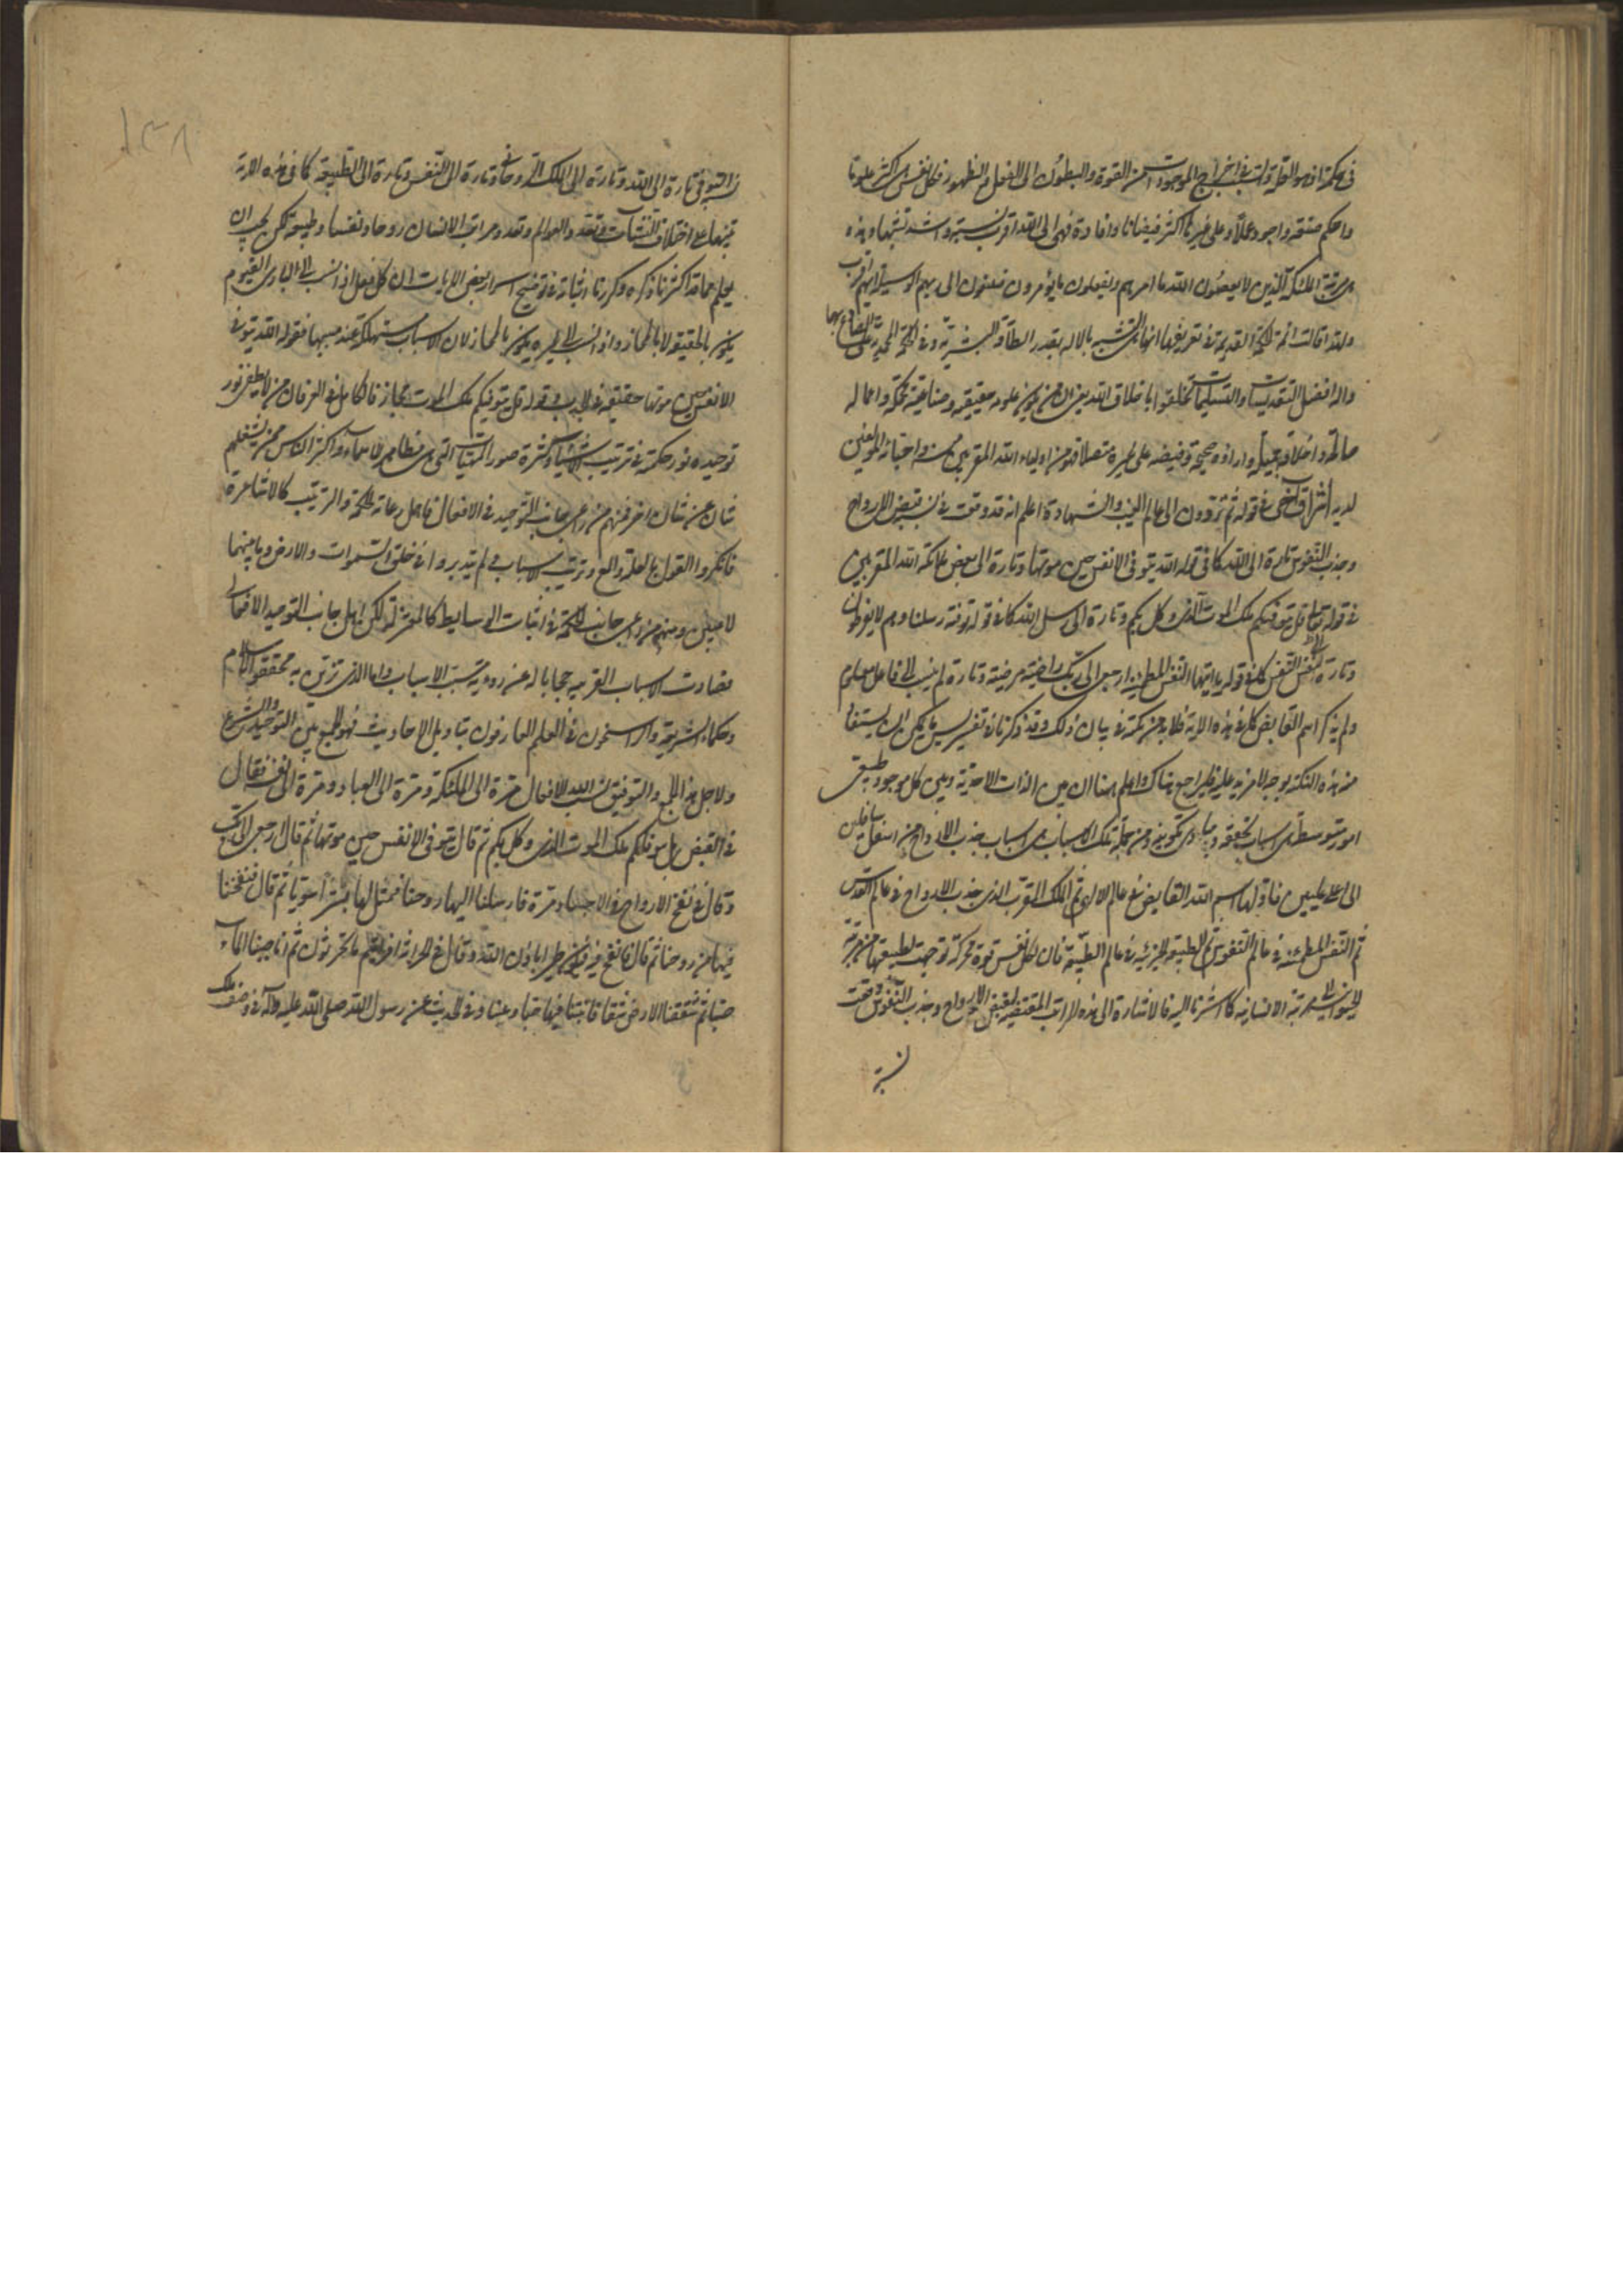 في حكمة اذ هو الطريقة اشبه في اخراج الموجودات من القوة والبطون الى الفعل والظهور فكل نفس هي اكثر علوما
واحكم صنعة واجود عملا وعلى غيرنا اكثر فيضانا وافادة فهي الى الله اقرب نسبة واشد تشبها وهذه
هي مرتبة الملائكة الذين لا يعصون الله ما امرهم ويفعلون ما يؤمرون يبتغون الى ربهم الوسيلة ايهم اقرب
ولهذا قالت ائمة الحكمة القديمة في تعريفها انها هي التشبه بالاله بقدر الطاقة البشرية وفي الحكمة المحمدية على الصادع بها
واله افضل التقديسات والتسليمات تخلقوا باخلاق الله يعني ان من يكون علومه حقيقية وصنايعه محكمة واعماله
صالحة واخلاقه جميلة واراؤه صحيحة وفيضه على غيره متصلا فهو من اولياء الله المقربين منه واحبائه المرضيين
لديه اشراق اخر في قوله ثم تردون الى عالم الغيب والشهادة اعلم انه قد وقعت في نسب قبض الارواح
وجذب النفوس تارة الى الله كما في قوله الله يتوفى الانفس حين موتها وتارة الى بعض ملائكة الله المقربين
في قوله تعالى قل يتوفيكم ملك الموت الذي وكل بكم وتارة الى رسل الله كما في قوله توفته رسلنا وهم لا يفرطون
وتارة الى نفس النفس كما في قوله يا ايتها النفس المطمئنة ارجعي الى ربك راضية مرضية وتارة لم ينسب الى فاعل معلوم
ولم يذكر اسم القابض كما في هذه الاية فلا بد من حكمة في بيان ذلك وقد ذكرنا في تفسير يس ما يمكن ان يستفاد
منه هذه النكتة بوجه لا مزيد عليه فليراجع هناك واعلم ههنا ان بين الذات الاحدية وبين كل موجود طبيعي
امور متوسطة هي اسباب تحققه ومبادي تكوينه ومن جملة تلك الاسباب هي اسباب جذب الارواح من اسفل سافلين
الى اعلى عليين فاولها اسم الله القابض في عالم الاله ثم الملك المقرب الذي جذب الارواح في عالم القدس
ثم النفس المطمئنة في عالم النفوس ثم الطبيعة الجزئية في عالم الطبيعة فان لكل نفس قوة محركة توجهت لطبيعتها من مرتبة
الحيوانية الى مرتبة الانسانية كما اشرنا اليه فالاشارة الى هذه المراتب المقتضية لقبض الارواح وجذب النفوس وقعت
نسبة
١٣٨
التوفي تارة الى الله وتارة الى الملك الروحاني وتارة الى النفس وتارة الى الطبيعة كما في هذه الاية
تنبيها على اختلاف النشآت وتعدد العوالم وتعدد مراتب الانسان روحا ونفسا وطبيعة لكن يجب ان
يعلم مما قد اكثرنا ذكره وكررنا اثباته في توضيح اسرار بعض الايات ان كل فعل اذا نسب الى الباري القيوم
يكون بالحقيقة لا بالمجاز واذا نسب الى غيره يكون بالمجاز لان الاسباب مستهلكة عند مسببها فقوله الله يتوفى
الانفس حين موتها حقيقة بلا ريب وقوله قل يتوفيكم ملك الموت مجاز فالكامل في العرفان من لا يطفي نور
توحيده نور حكمة في ترتيب الاشياء وكثرة صور الهيات التي هي مظاهر الاسماء واكثر الناس ممن يشغلهم
شان عن شان اخر فمنهم من راعى جانب التوحيد في الافعال فاهمل رعاية الحكمة والترتيب كالاشاعرة
فانكروا القول بالعلة والمع وترتيب الاسباب فلم يتدبروا في خلق السموات والارض وما بينهما
لاعبين ومنهم من راعى جانب الحكمة في اثبات الوسايط كالمعتزلة لكن اهمل جانب التوحيد الافعالي
فصارت الاسباب القريبة حجابا له عن رؤية مسبب الاسباب واما الذي تزين به محققوا الاسلام
وحكماء الشريعة والراسخون في العلم العارفون بتاويل الاحاديث فهو الجمع بين التوحيد والشرع
ولاجل هذا الجمع والتوفيق نسب الله الافعال مرة الى الملائكة ومرة الى العباد ومرة الى نفسه فقال
في القبض قل يتوفيكم ملك الموت الذي وكل بكم ثم قال يتوفى الانفس حين موتها ثم قال ارجعي الى ربك
وقال في نفخ الارواح في الاجساد مرة فارسلنا اليها روحنا فتمثل لها بشرا سويا ثم قال فنفخنا
فيها من روحنا ثم قال فانفخ فيه فيكون طيرا باذن الله وقال في الحراثة افرايتم ما تحرثون ثم انا صببنا الماء
صبا ثم شققنا الارض شقا فانبتنا فيها حبا وعنبا وفي الحديث عن رسول الله صلى الله عليه واله في وصف ملك